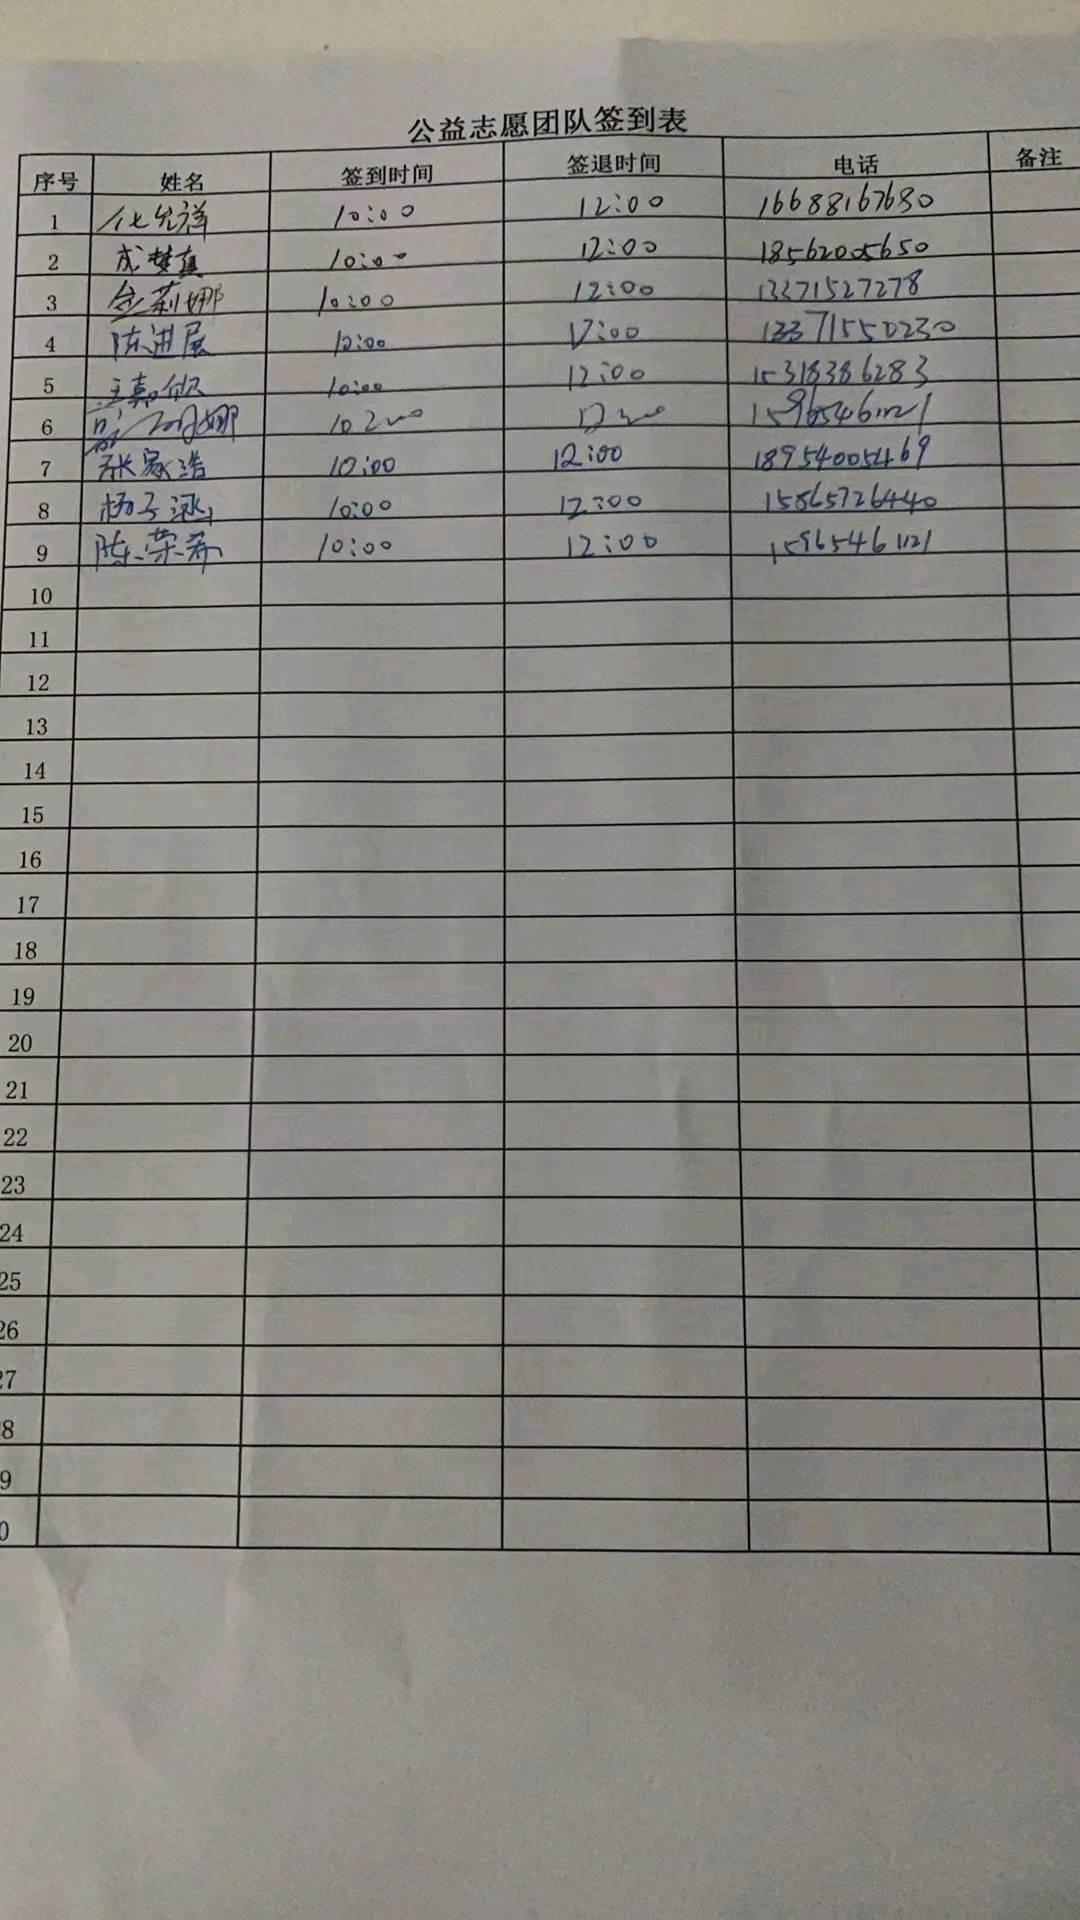 公益志愿团队签到表
序号 姓名 签到时间 签退时间 电话 备注
1 化允祥 10:00 12:00 16688167680
2 成梦真 10:00 12:00 18562005650
3 金莉娜 10:00 12:00 13371527278
4 陈进展 10:00 12:00 13371550230
5 王嘉欣 10:00 12:00 15318386283
6 娜 15965461121
7 张家浩 10:00 12:00 18954005469
8 杨子 10:00 12:00 15865726440
9 陈荣希 10:00 12:00 15965461121
10
11
12
13
14
15
16
17
18
19
20
21
22
23
24
25
26
27
8
9
0